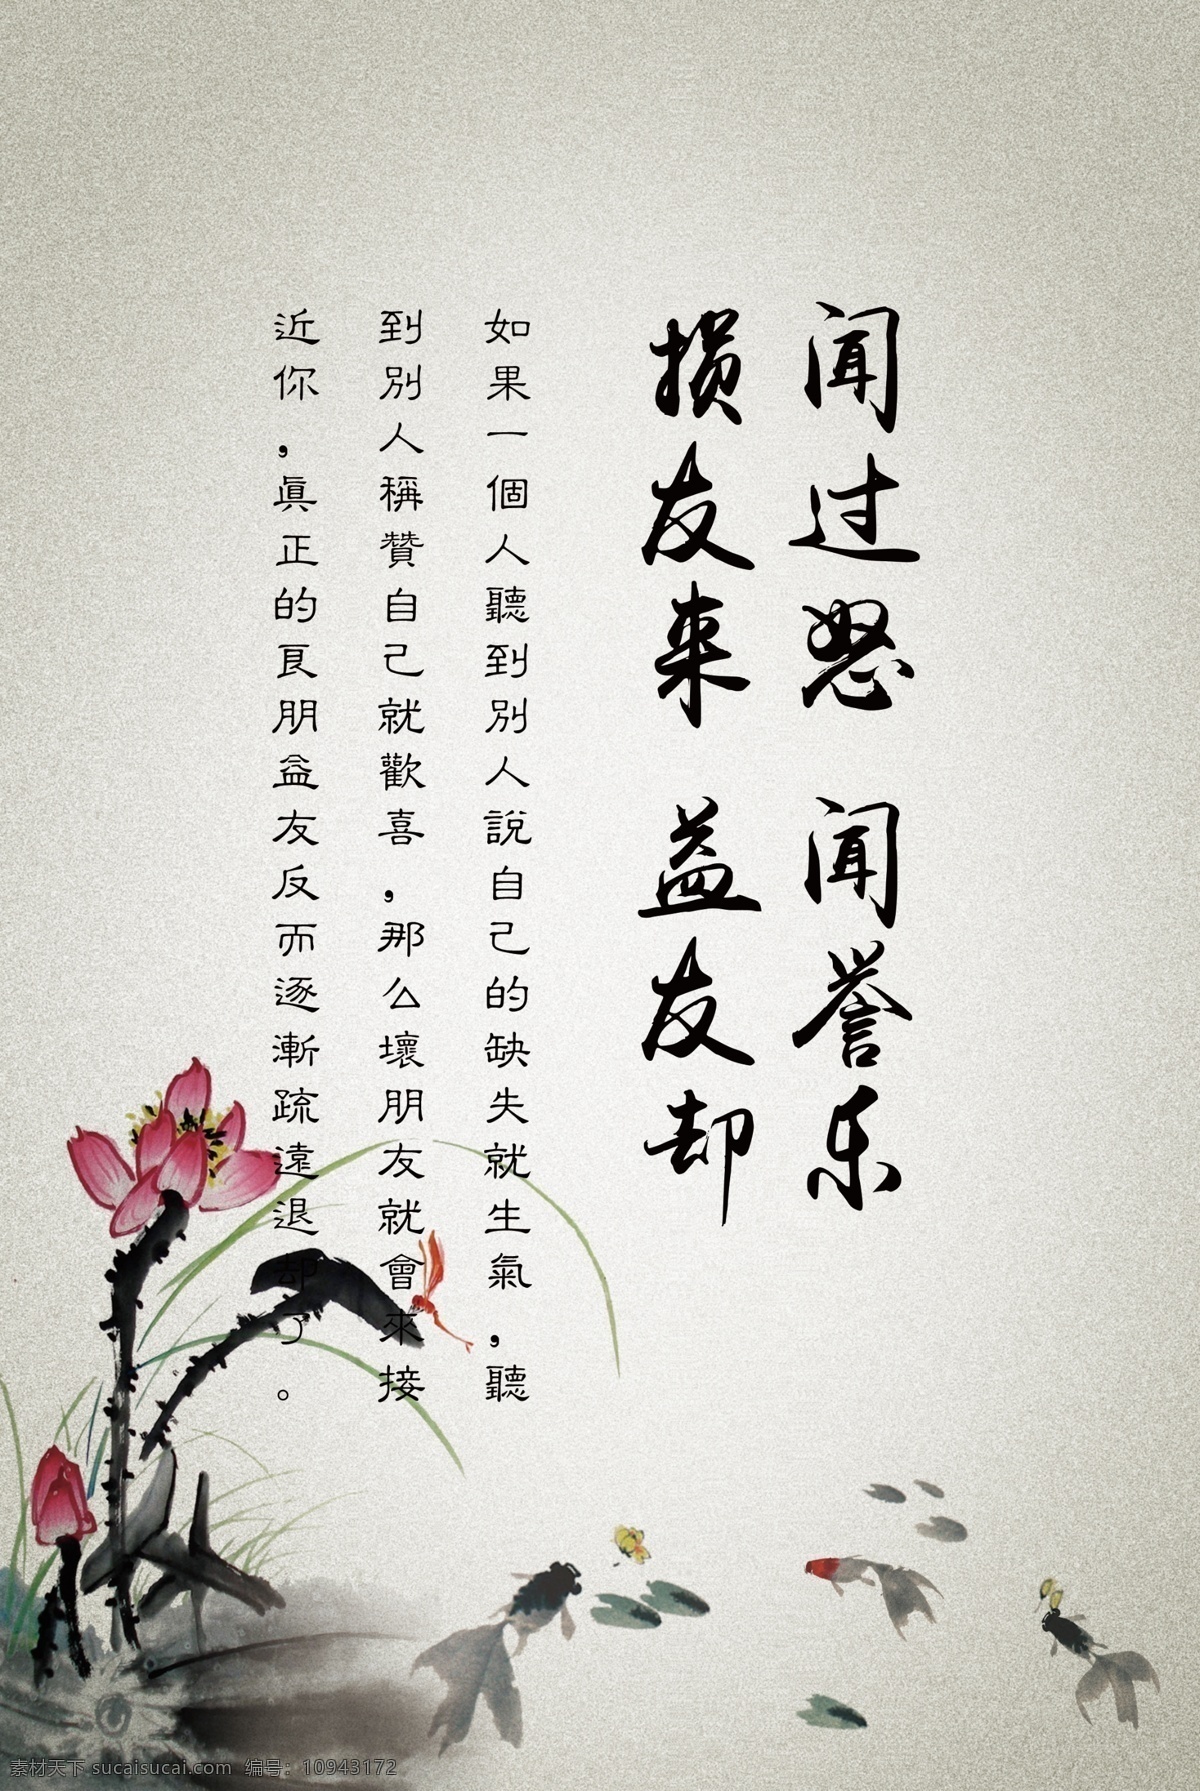 闻过怒 闻誉乐
损友来 益友却
如果一個人聽到別人說自己的缺失就生氣，聽
到別人稱贊自己就歡喜，那么壞朋友就會來接
近你，眞正的良朋益友反而逐漸疏遠退却了。
素材天下 sucaisucai.com 编号：10943172